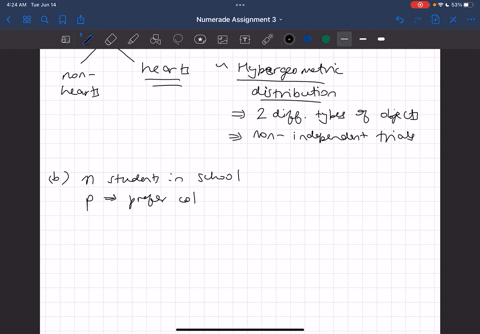 4:24 AM Tue Jun 14
53%
Numerade Assignment 3
non-
hearts
hearts
~ Hypergeometric
distribution
⇒ 2 diff. types of objects
⇒ non-independent trials
(b) n students in school
p ⇒ prefer col